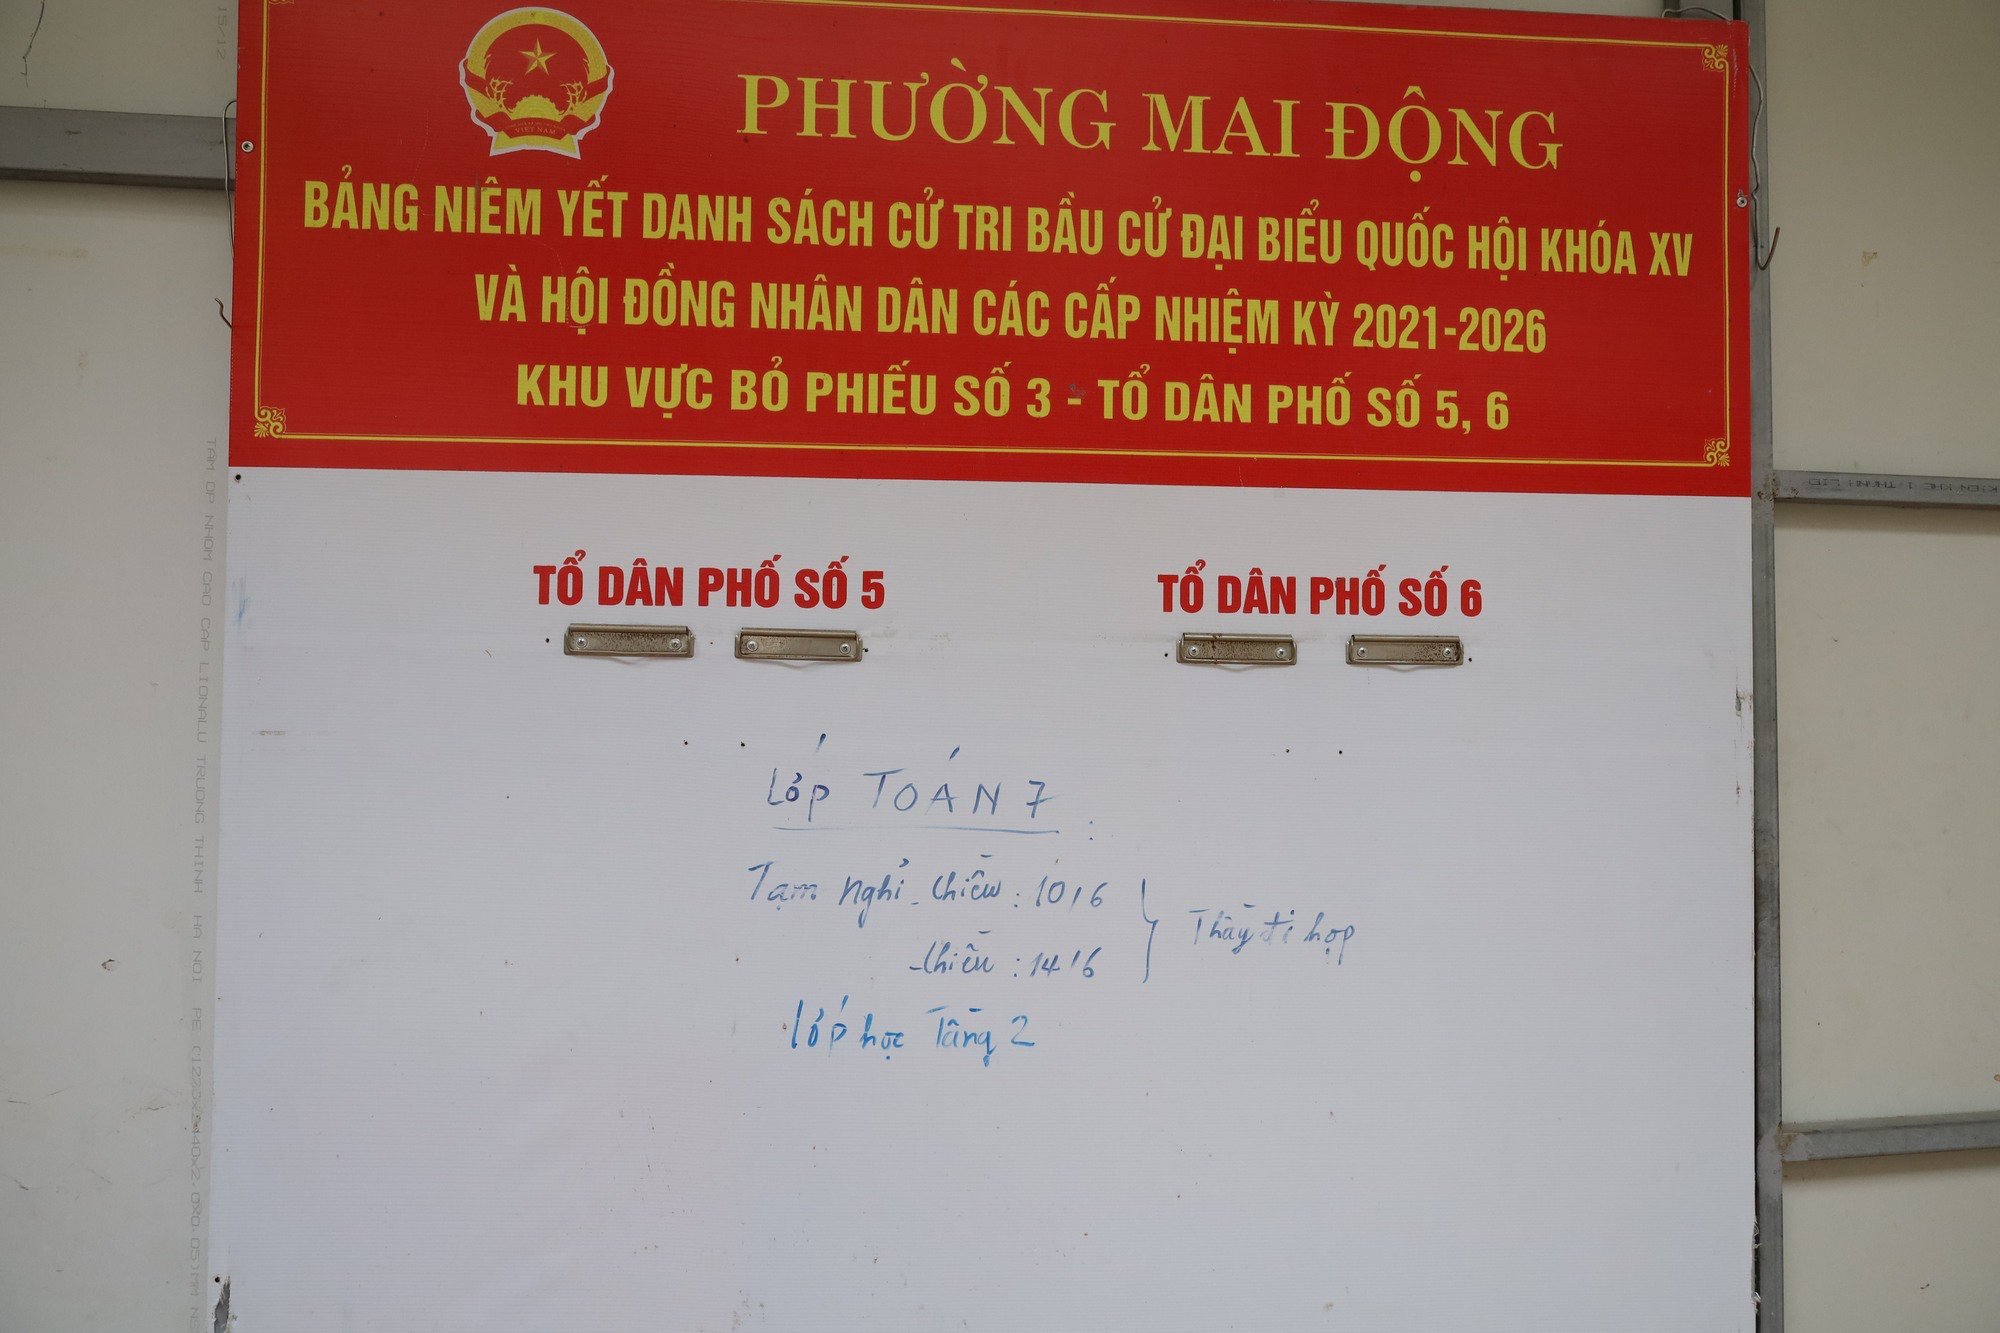 VIỆT NAM
PHƯỜNG MAI ĐỘNG
BẢNG NIÊM YẾT DANH SÁCH CỬ TRI BẦU CỬ ĐẠI BIỂU QUỐC HỘI KHÓA XV
VÀ HỘI ĐỒNG NHÂN DÂN CÁC CẤP NHIỆM KỲ 2021-2026
KHU VỰC BỎ PHIẾU SỐ 3 - TỔ DÂN PHỐ SỐ 5, 6
TỔ DÂN PHỐ SỐ 5
TỔ DÂN PHỐ SỐ 6
Lớp TOÁN 7 :
Tạm nghỉ - Chiều : 10/6
- Chiều : 14/6
Thầy đi họp
Lớp học Tầng 2
TAM OP NHOM CAO CAP LIONALU TRUONG THINH HA NOI